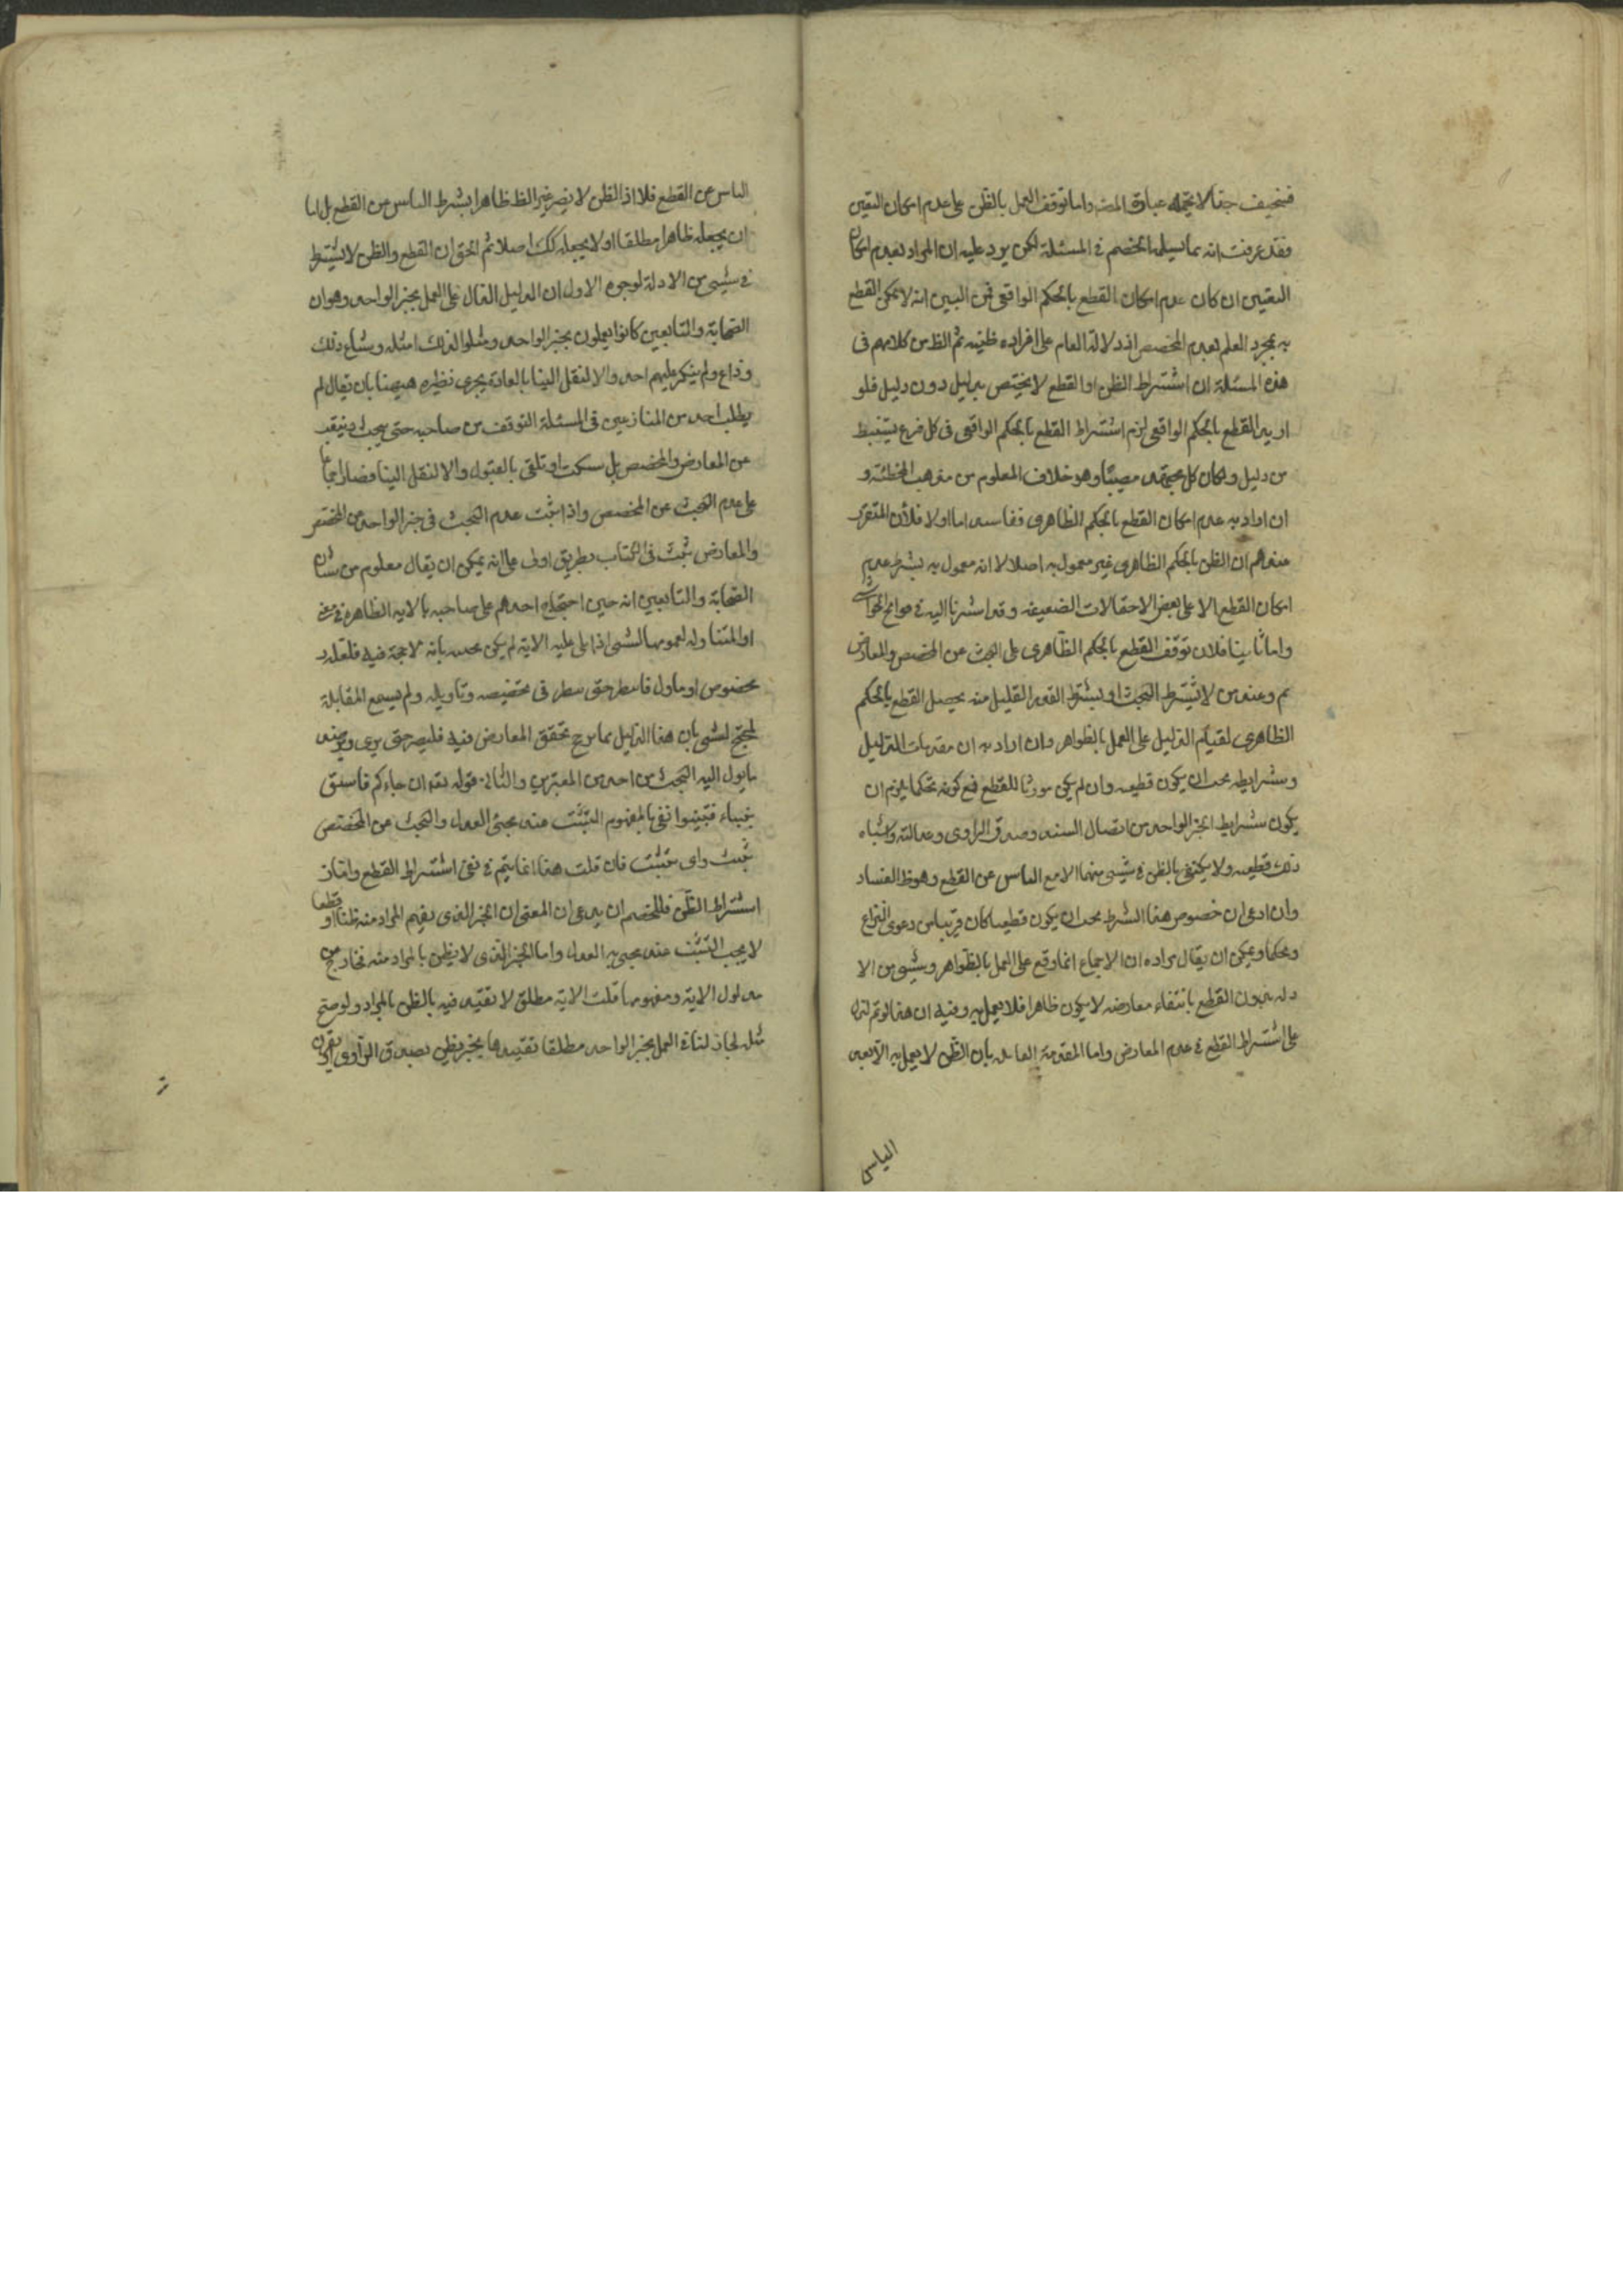 فضعيف جدا لا يحتمله عبارة المصـ واما توقف العمل بالظن على عدم امكان اليقين
فقد عرفت انه مما يسلمه الخصم في المسئلة لكن يرد عليه ان المراد بعدم امكان
اليقين ان كان عدم امكان القطع بالحكم الواقعي فمن البين انه لا يمكن القطع
به بمجرد العلم بعدم المخصص اذ دلالة العام على افراده ظنية ثم الظ من كلامهم في
هذه المسئلة ان اشتراط الظن او القطع لا يختص بدليل دون دليل فلو
اريد القطع بالحكم الواقعي لزم اشتراط القطع بالحكم الواقعي في كل فرع يستنبط
من دليل ولكان كل مجتهد مصيبا وهو خلاف المعلوم من مذهب المخطئة و
ان اراد به عدم امكان القطع بالحكم الظاهري ففاسد اما اولا فلان المتقرر
عندهم ان الظن بالحكم الظاهري غير معمول به اصلا لا انه معمول به بشرط عدم
امكان القطع الا على بعض الاحتمالات الضعيفة وقد اشرنا اليه في الحواشي
واما ثانيا فلان توقف القطع بالحكم الظاهري على البحث عن المخصص والمعارض
مم وعند من لا يشترط البحث او يشترط القدر القليل منه يحصل القطع بالحكم
الظاهري لقيام الدليل على العمل بالظواهر وان اراد به ان مقدمات الدليل
وشرايطه يجب ان يكون قطعية وان لم يكن مورثا للقطع فمع كونه تحكما يلزم ان
يكون شرايط الخبر الواحد من اتصال السند وصدق الراوي وعدالته واشباه
ذلك قطعية ولا يكتفي بالظن في شيئ منها الا مع الياس عن القطع وهو ظ الفساد
وان ادعى ان خصوص هذا الشرط يجب ان يكون قطعيا كان قريبا من دعوى النزاع
وتحكما ويمكن ان يقال مراده ان الاجماع انما وقع على العمل بالظواهر وشيئ من الا
دلة بدون القطع بانتفاء معارضه لا يكون ظاهرا فلا يعمل به وفيه ان هذا لو تم لدل
على اشتراط القطع في عدم المعارض واما المقدمة القائلة بان الظن لا يعمل به الا بعد
الياس
الياس من القطع فلا اذ الظن لا يصير غير الظ ظاهرا بشرط الياس من القطع بل اما
ان يجعله ظاهرا مطلقا او لا يجعله كك اصلا ثم الحق ان القطع والظن لا يشترط
في شيئ من الادلة لوجوه الاول ان الدليل الدال على العمل بخبر الواحد وهو ان
الصحابة والتابعين كانوا يعملون بخبر الواحد ومثلوا لذلك امثلة وشاع ذلك
وذاع ولم ينكر عليهم احد والا لنقل الينا بالعادة يجري نظيره ههنا بان يقال لم
يطلب احد من المنازعين في المسئلة التوقف من صاحبه حتى يبحث
عن المعارض والمخصص بل سكت او تلقى بالقبول والا لنقل الينا فصار اجماعا
على عدم البحث عن المخصص واذا ثبت عدم البحث في خبر الواحد عن المخصص
والمعارض ثبت في الكتاب بطريق اولى على انه يمكن ان يقال معلوم من شان
الصحابة والتابعين انه حين احتجاج احدهم على صاحبه بالاية الظاهرة في
او المتناولة لعمومها لشيئ اذا تلى عليه الاية لم يكن يجيب بانه لا حجة فيه فلعله
مخصوص او ماول فانتظر حتى ننظر في تخصيصه وتاويله ولم يسمع المقابلة
لمحتج لشيئ بان هذا الدليل مما يرجى تحقق المعارض فيه فليصبر حتى
ما يؤل اليه البحث من احد من المعتبرين والثاني قوله تعـ ان جاءكم فاسق
بنباء فتبينوا نفى بالمفهوم التثبت عند مجيئ العدل والبحث عن المخصص
تثبت واي تثبت فان قلت هذا انما يتم في نفي اشتراط القطع واما في
اشتراط الظن فللخصم ان يدعي ان المعنى ان الخبر الذي يفهم المراد منه ظنا او قطعا
لا يجب التثبت عند مجيئ به العدل واما الخبر الذي لا يظن بالمراد منه فخارج من
مدلول الاية ومفهومها قلت الاية مطلق لا تقييد فيه بالظن بالمراد ولو صح
مثله لجاز لنفاة العمل بخبر الواحد مطلقا تقييدها بخبر يظن بصدق الراوي